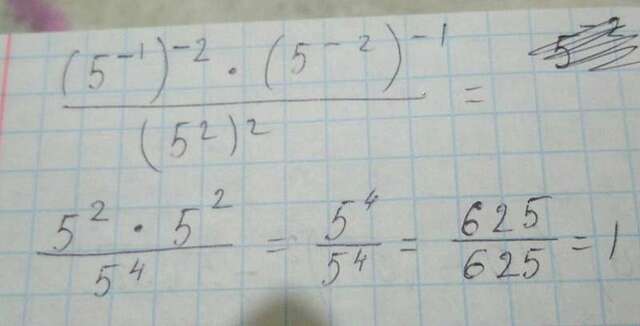 ((5⁻¹)⁻² · (5⁻²)⁻¹)/(5²)² =
(5² · 5²)/5⁴ = 5⁴/5⁴ = 625/625 = 1